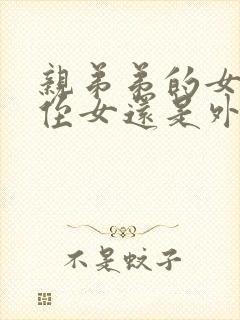 親弟弟的女
侄女還是外
不是蚊子